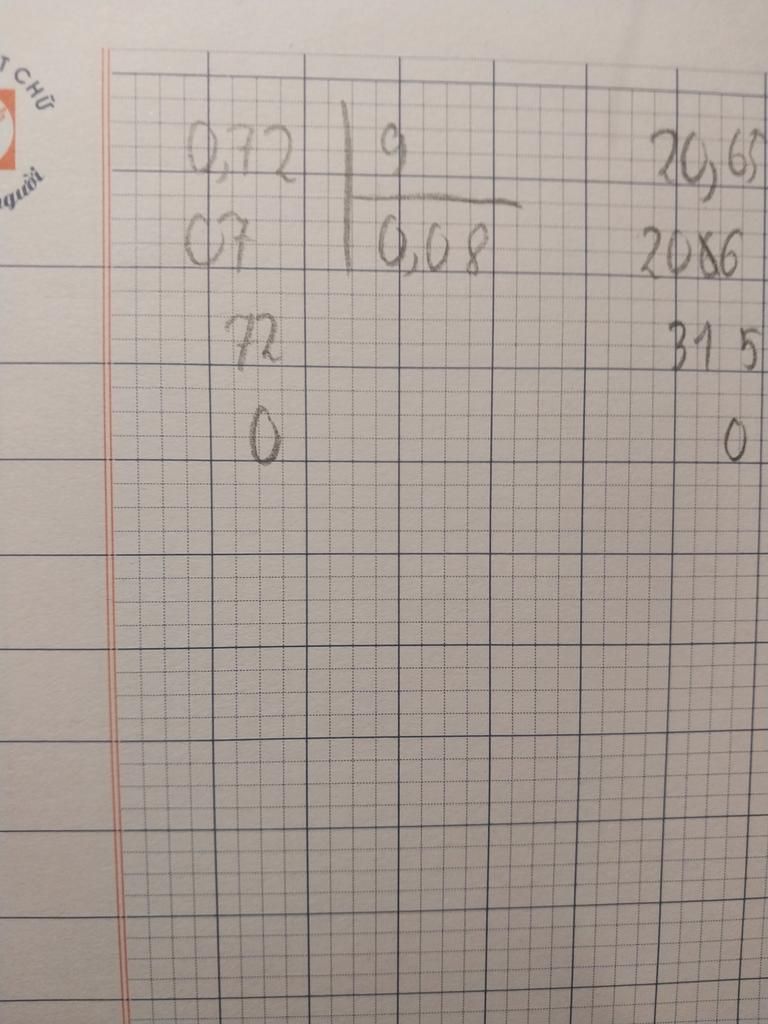 T CHỮ
người
0,72 9 20,65
07 0,08 206
72 315
0 0